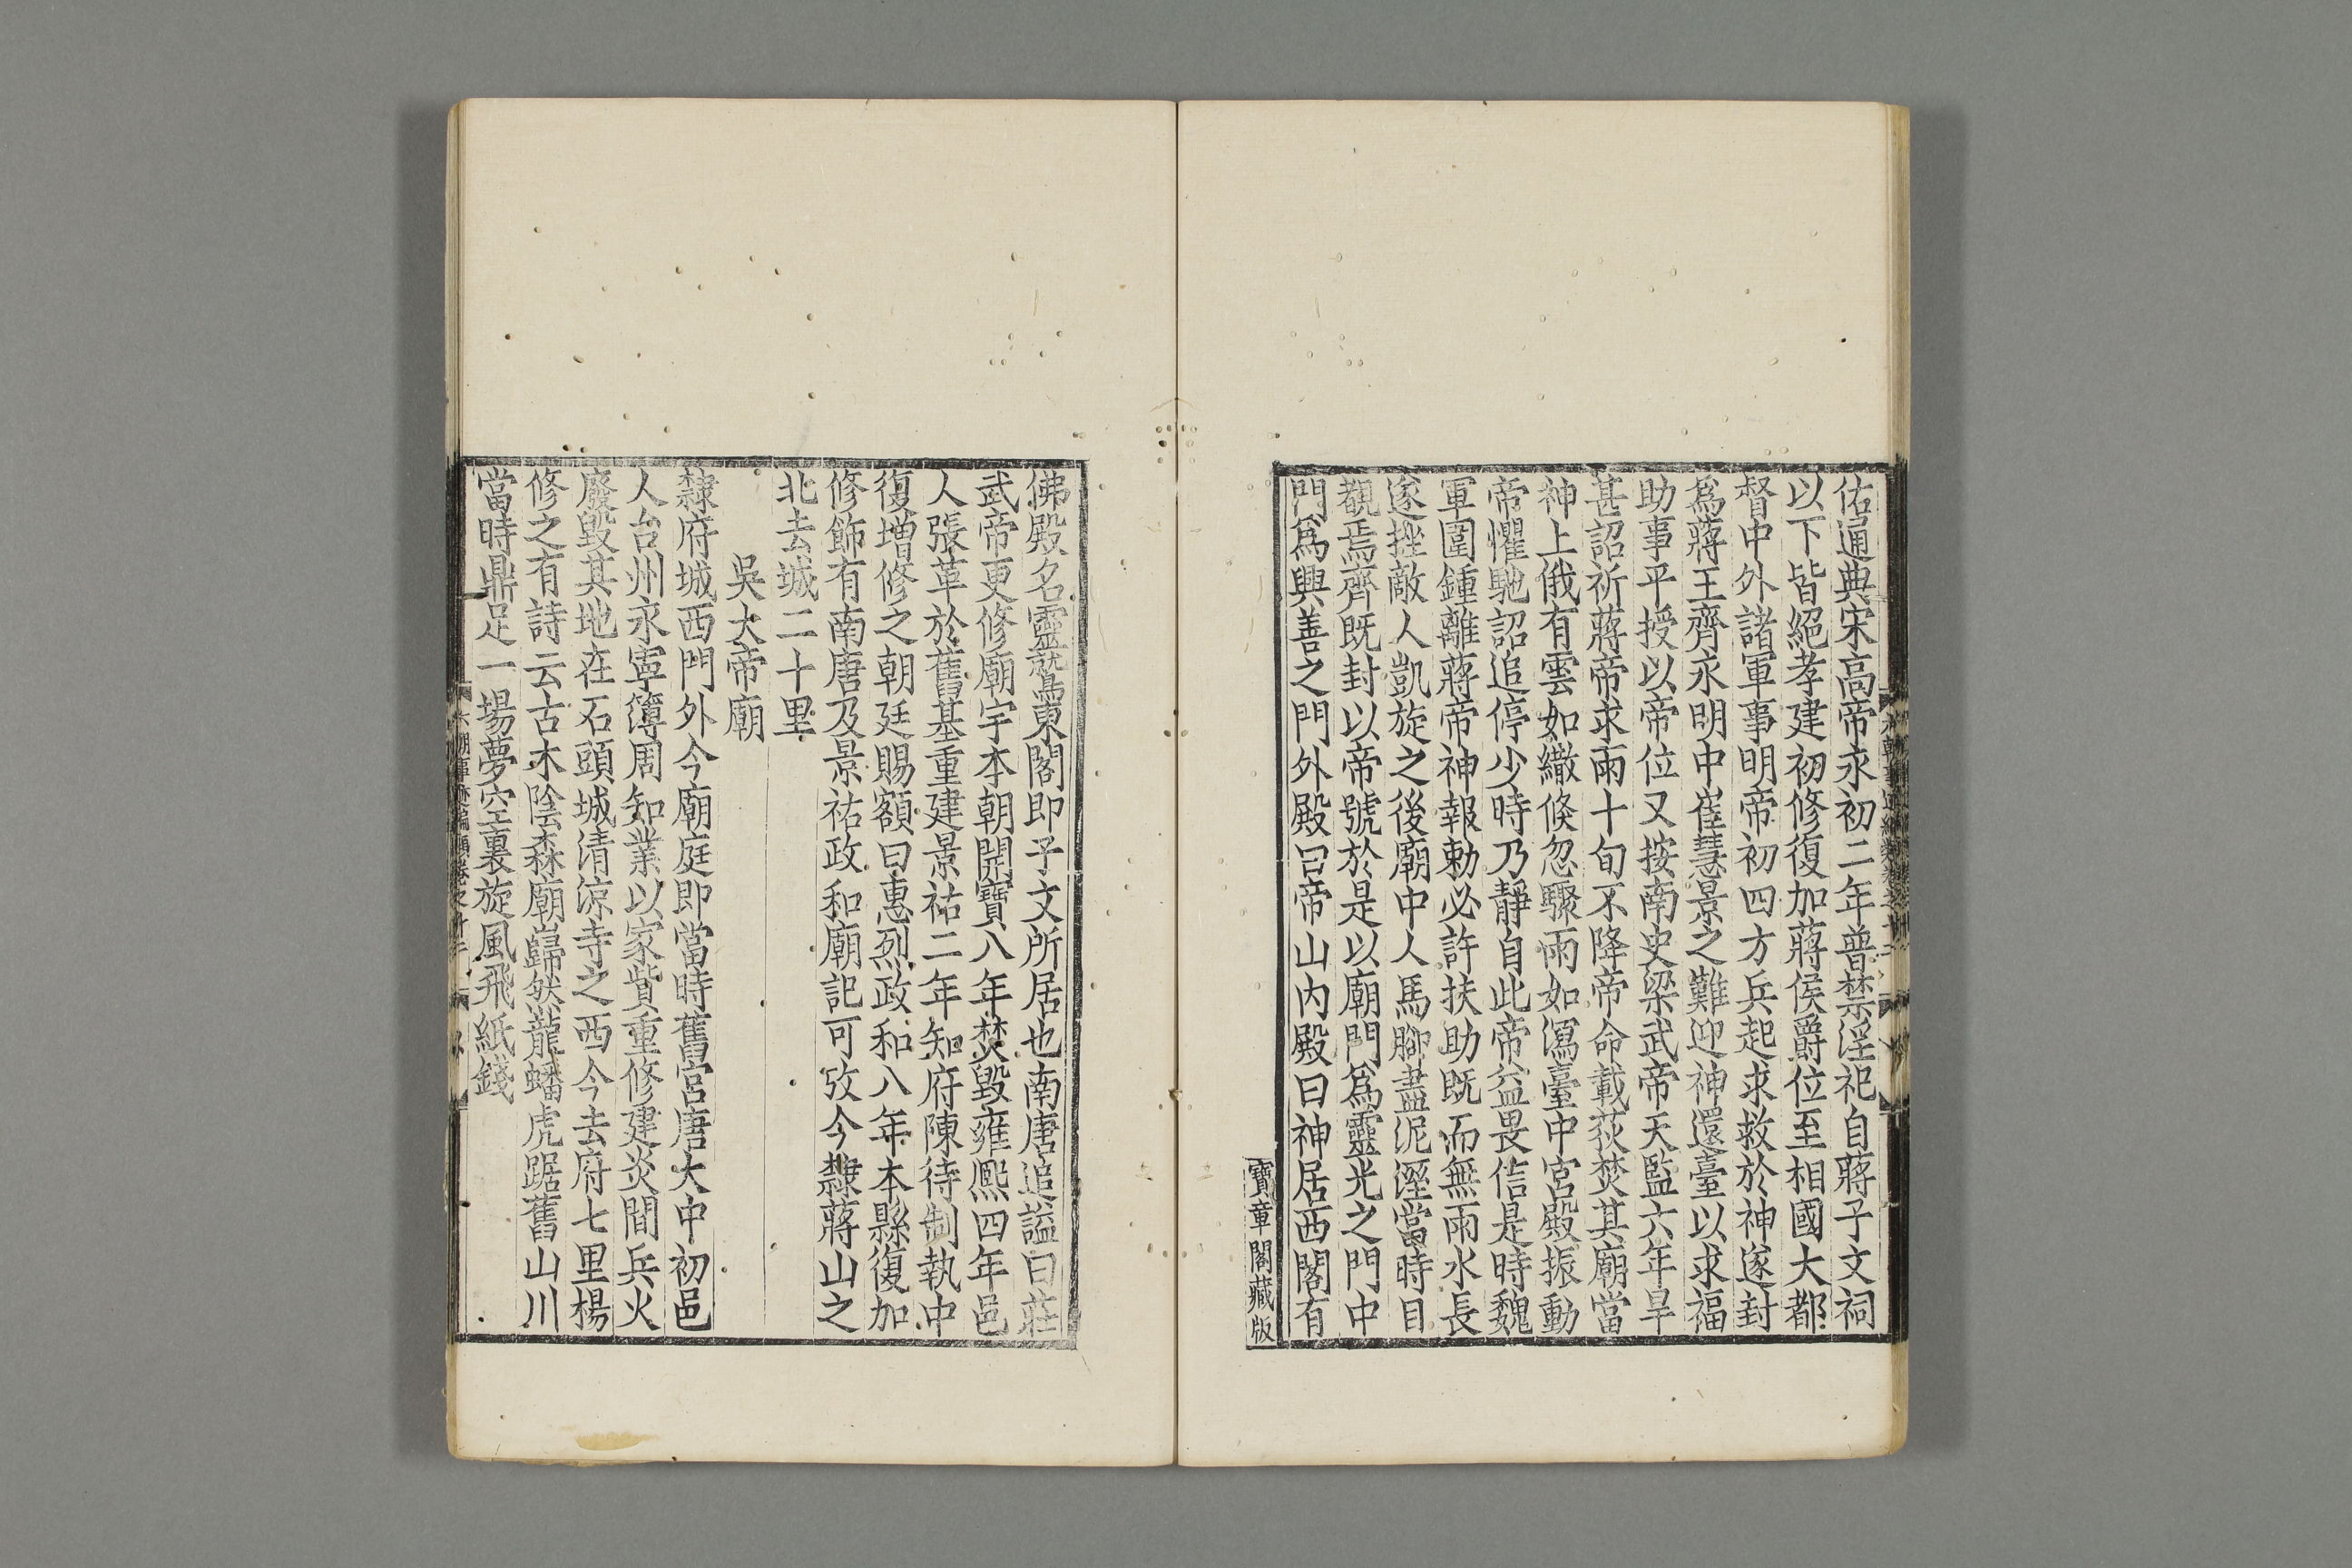 佑通典宋高帝永初二年普禁淫祀自蔣子文祠
以下皆絕孝建初修復加蔣侯爵位至相國大都
督中外諸軍事明帝初四方兵起求救於神遂封
爲蔣王齊永明中崔慧景之難迎神還臺以求福
助事平授以帝位又按南史梁武帝天監六年旱
甚詔祈蔣帝求雨十旬不降帝命載荻焚其廟當
神上俄有雲如繖倐忽驟雨如瀉臺中宮殿振動
帝懼馳詔追停少時乃靜自此帝益畏信是時魏
軍圍鍾離蔣帝神報勅必許扶助既而無雨水長
遂挫敵人凱旋之後廟中人馬腳盡泥溼當時目
覩焉齊既封以帝號於是以廟門爲靈光之門中
門爲興善之門外殿曰帝山内殿曰神居西閣有
寶章閣藏版
佛殿名靈鷲東閣即子文所居也南唐追謚曰莊
武帝更修廟宇本朝開寶八年焚毀雍熙四年邑
人張革於舊基重建景祐二年知府陳待制執中
復增修之朝廷賜額曰惠烈政和八年本縣復加
修飾有南唐及景祐政和廟記可攷今隸蔣山之
北去城二十里
吳大帝廟
隸府城西門外今廟庭即當時舊宮唐大中初邑
人台州永寧簿周知業以家貲重修建炎間兵火
廢毀其地在石頭城清涼寺之西今去府七里楊
修之有詩云古木陰森廟巋然龍蟠虎踞舊山川
當時鼎足一場夢空裏旋風飛紙錢
六朝事迹編類卷之十二